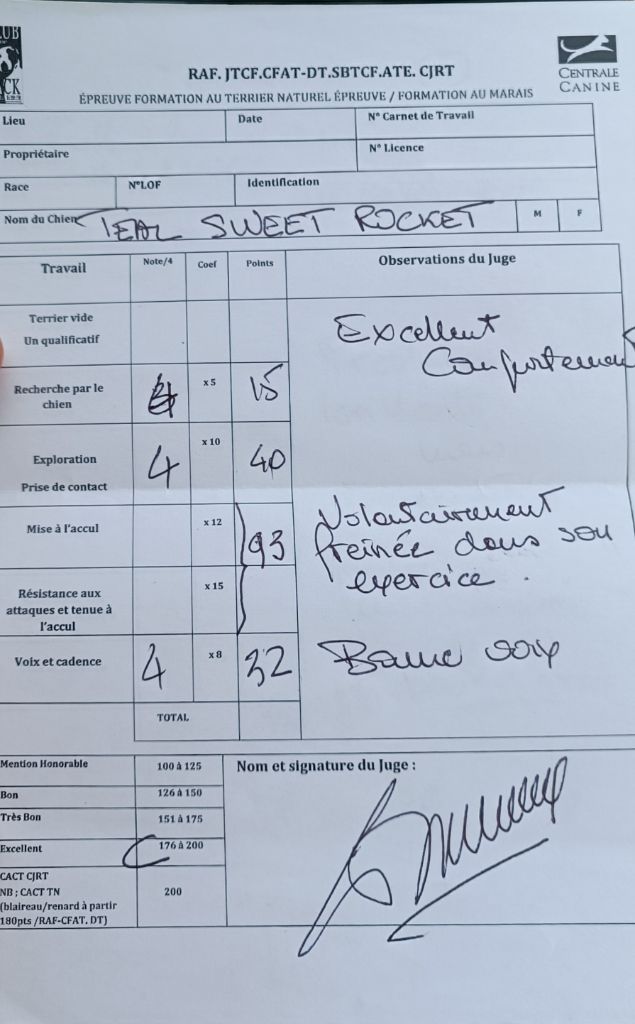 LUB
CK
CENTRALE
CANINE
RAF. JTCF.CFAT-DT.SBTCF.ATE. CJRT
ÉPREUVE FORMATION AU TERRIER NATUREL ÉPREUVE / FORMATION AU MARAIS
Lieu Date N° Carnet de Travail
Propriétaire N° Licence
Race N°LOF Identification
Nom du Chien TEAL SWEET ROCKET M F
Travail Note/4 Coef Points Observations du Juge
Terrier vide
Un qualificatif
Excellent
Comportement
Recherche par le
chien
x 5 15
Exploration
Prise de contact
4 x 10 40
Mise à l'accul x 12
93
Volontairement
freinée dans son
exercice.
Résistance aux
attaques et tenue à
l'accul
x 15
Voix et cadence 4 x 8 32 Bonne voix
TOTAL
Mention Honorable 100 à 125 Nom et signature du Juge :
Bon 126 à 150
Très Bon 151 à 175
Excellent 176 à 200
CACT CJRT
NB ; CACT TN 200
(blaireau/renard à partir
180pts /RAF-CFAT, DT)